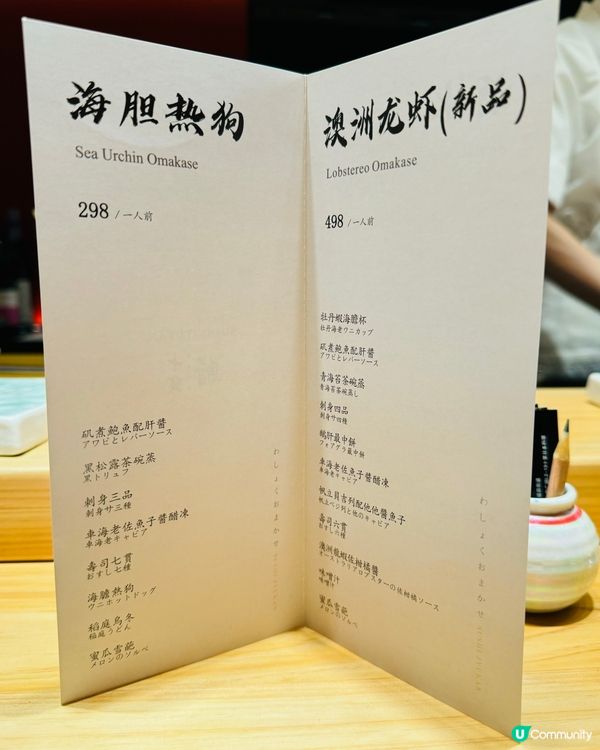 海胆热狗
Sea Urchin Omakase
298 / 一人前
矶煮鮑魚配肝醬
アワビとレバーソース
黑松露茶碗蒸
黒トリュフ
刺身三品
刺身サ三種
車海老佐魚子醬醋凍
車海老キャビア
壽司七貫
おすし七種
海膽熱狗
ウニホットドッグ
稻庭烏冬
稲庭うどん
蜜瓜雪葩
メロンのソルベ
わしょくおまかせ
澳洲龙虾(新品)
Lobstereo Omakase
498 / 一人前
牡丹蝦海膽杯
牡丹海老ウニカップ
矶煮鮑魚配肝醬
アワビとレバーソース
青海苔茶碗蒸
青海苔茶碗蒸し
刺身四品
刺身サ四種
鵝肝最中餅
フォアグラ最中餅
車海老佐魚子醬醋凍
車海老キャビア
帆立貝吉列配他他醬魚子
帆立ベジ列と他のキャビア
壽司六貫
おすし六種
澳洲龍蝦佐柑橘醬
オーストラリアロブスターの佐柑橘ソース
味噌汁
味噌汁
蜜瓜雪葩
メロンのソルベ
わしょくおまかせ
U Community